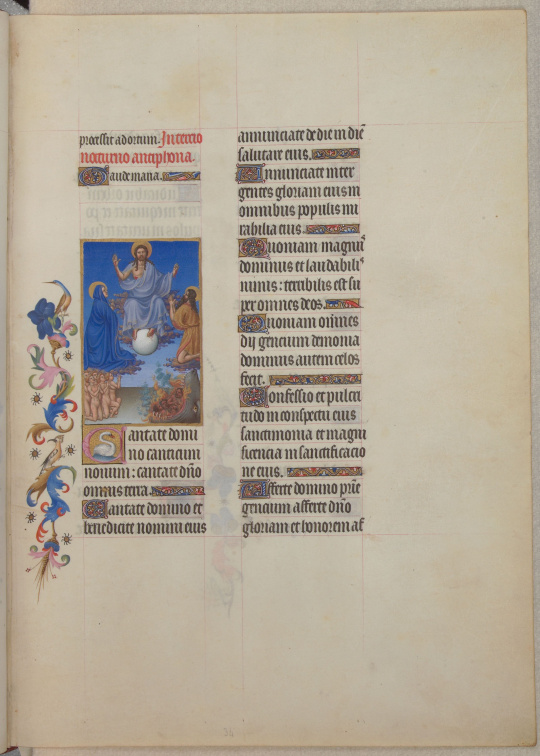 processit ad ortum. In tercio
nocturno antiphona.
Gaude maria.
Cantate domi
no canticum
novum: cantate dño
omnis terra.
Cantate domino et
benedicite nomini eius
annunciate de die in diē
salutare eius.
Annunciate inter
gentes gloriam eius in
omnibus populis mi
rabilia eius.
Quoniam magnus
dominus et laudabilis
nimis: terribilis est su
per omnes deos.
Quoniam omnes
dij gencium demonia
dominus autem celos
fecit.
Confessio et pulcri
tudo in conspectu eius
sanctimonia et magni
ficencia in sanctificacio
ne eius.
Afferte domino patrie
gencium afferte dño
gloriam et honorem af
34